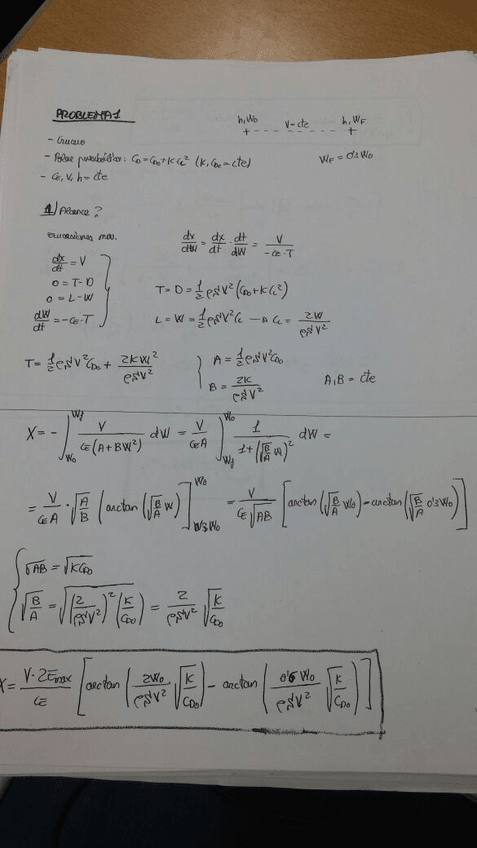 PROBLEMA 1
h, W₀ V=cte h, W_F
- Crucero
- Polar parabólica: C_D = C_D₀ + K C_L² (K, C_D₀ = cte) W_F = 0'3 W₀
- C_E, V, h = cte
1) Alcance?
ecuaciones mov.
dx/dt = V
0 = T - D
0 = L - W
dW/dt = -C_E·T
dx/dW = dx/dt · dt/dW = V/(-C_E·T)
T = D = 1/2 ρSV² (C_D₀ + K C_L²)
L = W = 1/2 ρSV² C_L → C_L = 2W/(ρSV²)
T = 1/2 ρSV² C_D₀ + 2KW²/(ρSV²) { A = 1/2 ρSV² C_D₀
B = 2K/(ρSV²) A, B = cte
X = - ∫_{W₀}^{W_f} V/(C_E(A+BW²)) dW = V/(C_E A) ∫_{W_f}^{W₀} 1/(1+(√(B/A) W)²) dW =
= V/(C_E A) · √(A/B) (arctan(√(B/A) W)]_{0'3W₀}^{W₀} = V/(C_E √(AB)) [arctan(√(B/A) W₀) - arctan(√(B/A) 0'3W₀)]
{ √(AB) = √(K C_D₀)
√(B/A) = √((2/(ρSV²))² (K/C_D₀)) = 2/(ρSV²) √(K/C_D₀)
X = V·2E_max/C_E [arctan(2W₀/(ρSV²) √(K/C_D₀)) - arctan(0'6 W₀/(ρSV²) √(K/C_D₀))]